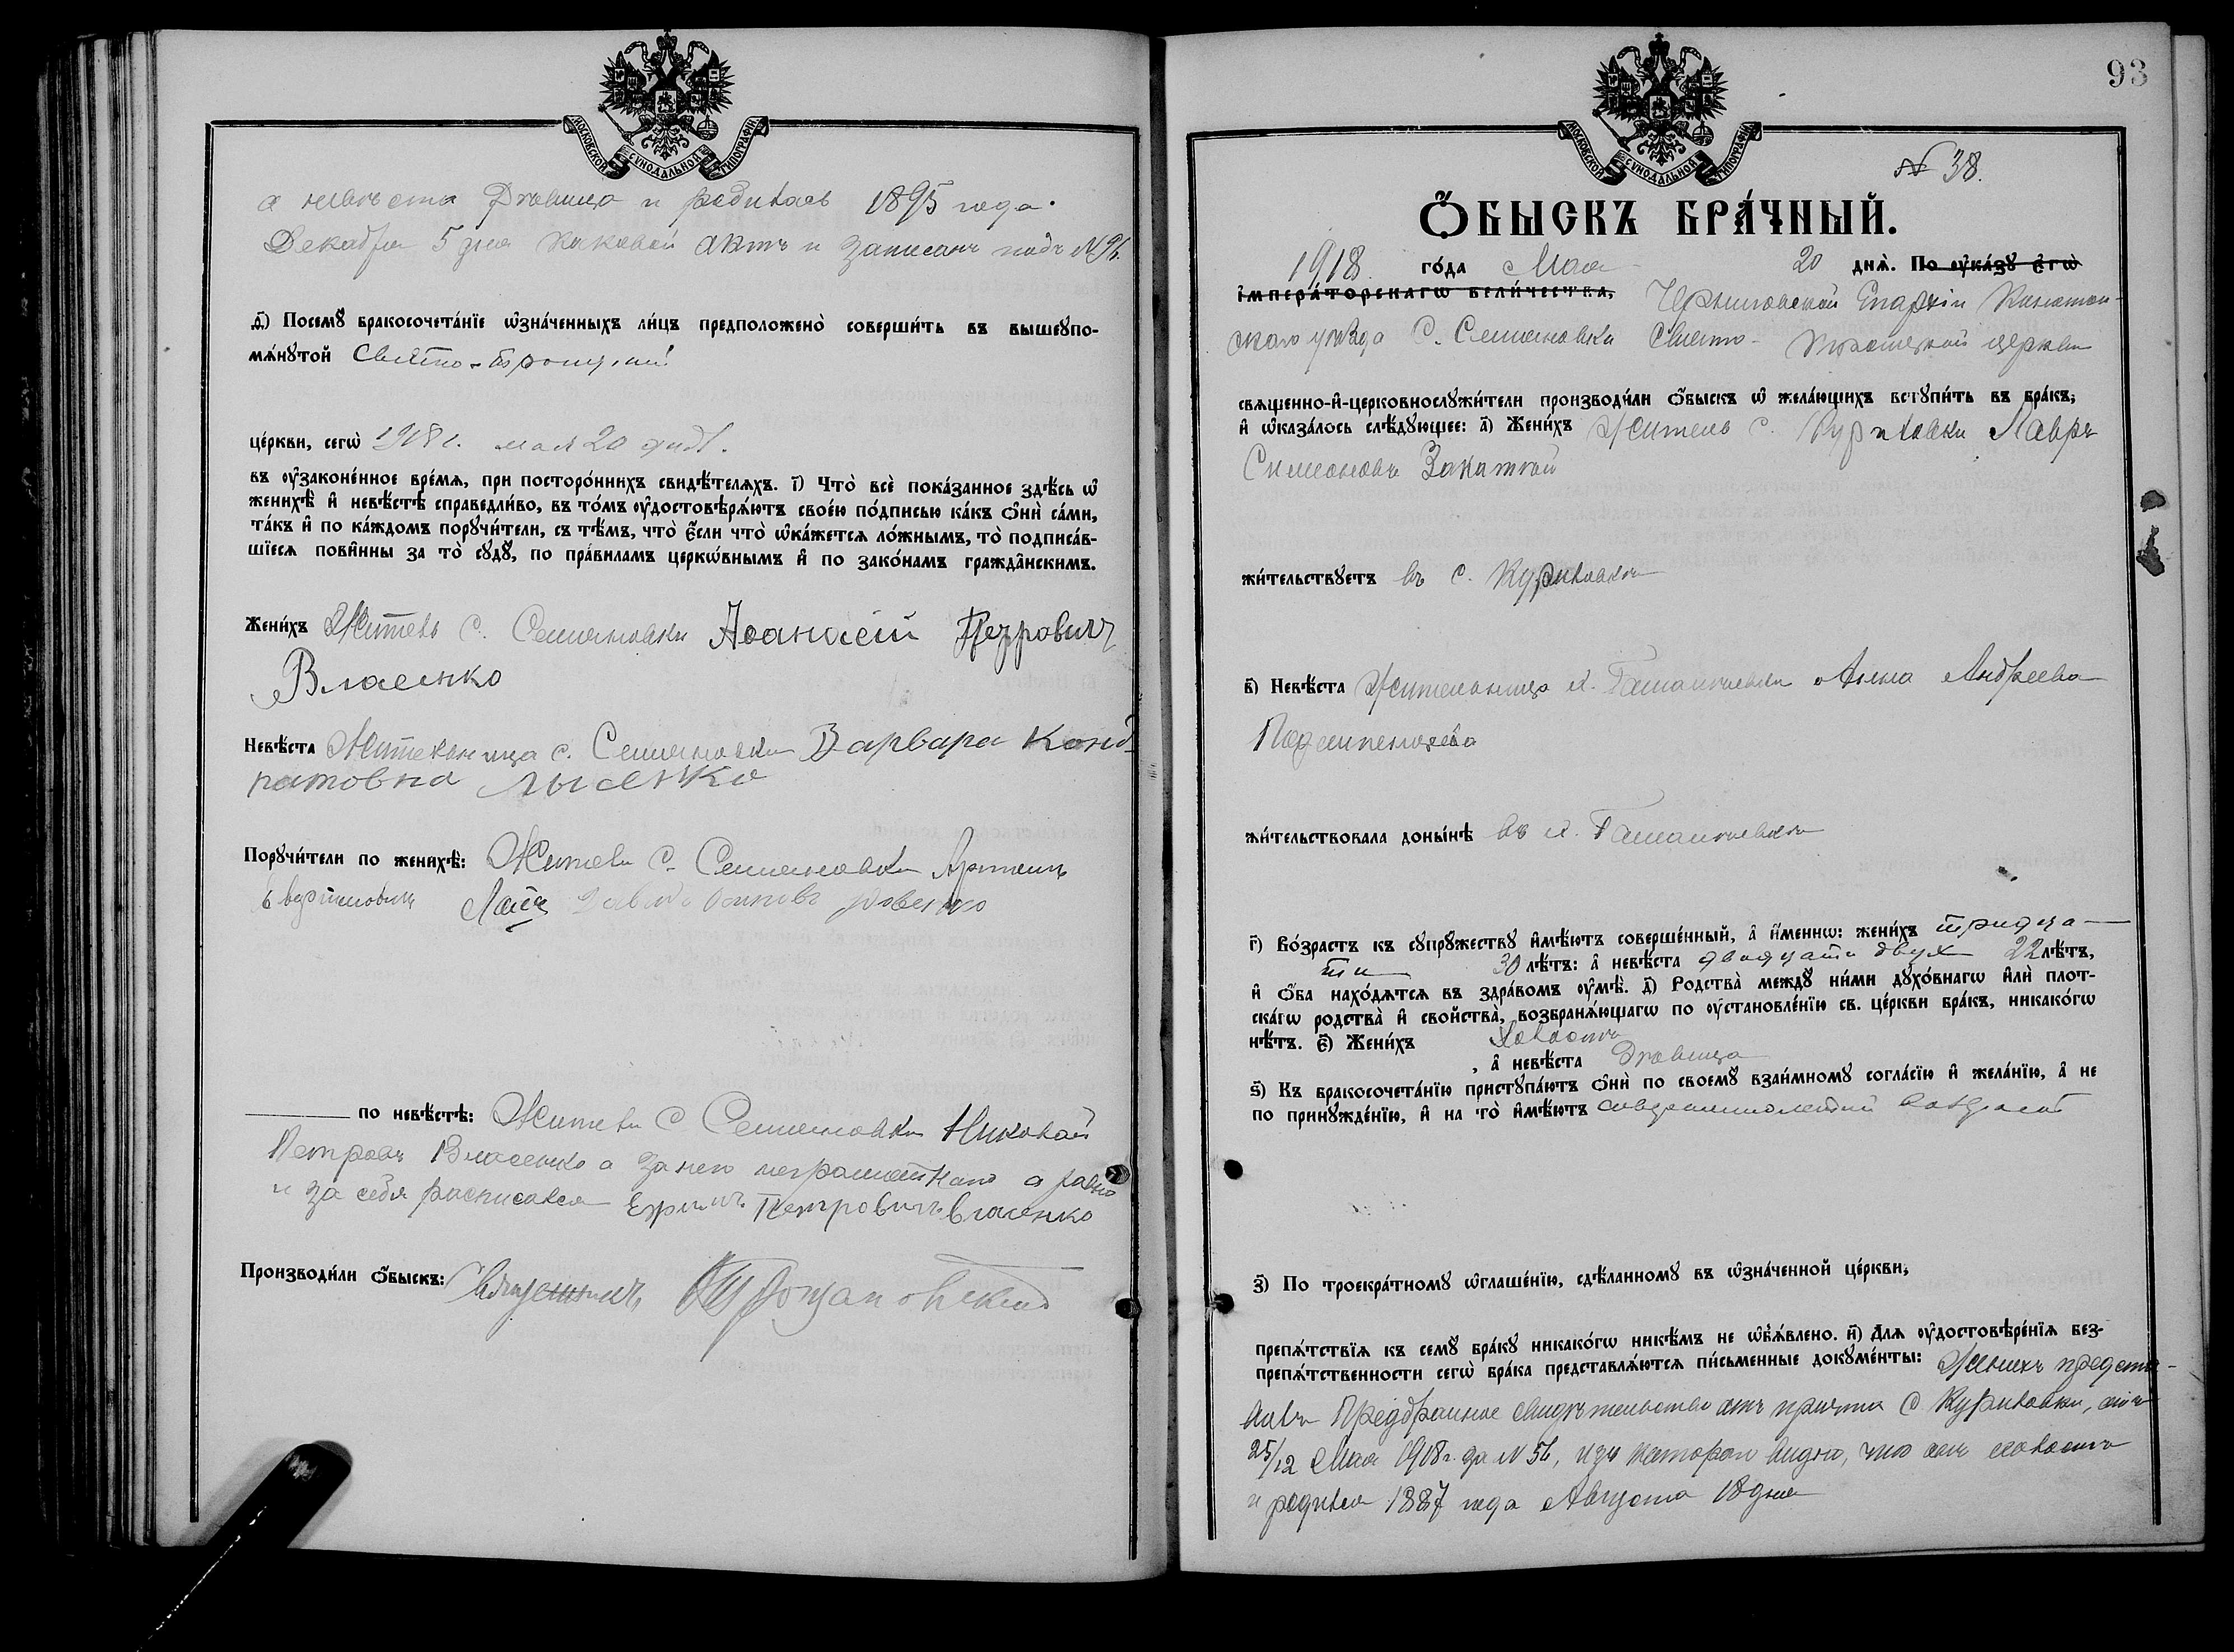 МОСКОВСКОЙ СѴНОДАЛЬНОЙ ТИПОГРАФІИ
а невѣста Дѣвица и родилась 1895 года.
Декабря 5 дня каковой актъ и записанъ подъ №
д҃) Посемꙋ бракосочета́нїе ѡ҆зна́ченныхъ ли́цъ предположено̀ соверши́ть въ вышеꙋпо-
мѧ́нꙋтой Свято-Троицкой
це́ркви, сегѡ̀ 1918 г. мая 20 дня.
въ ᲂу҆законе́нное вре́мѧ, при посторо́ннихъ свидѣ́телѧхъ. і҃) Что̀ всѐ пока́занное здѣ́сь ѡ҆
женихѣ̀ и҆ невѣ́стѣ справедли́во, въ то́мъ ᲂу҆достовѣрѧ́ютъ свое́ю по́дписью ка́къ ѻ҆нѝ са́ми,
та́къ и҆ по ка́ждомъ порꙋчи́тели, съ тѣ́мъ, что̀ є҆́сли что̀ ѡ҆ка́жетсѧ ло́жнымъ, то̀ подписа́в-
шїесѧ пови́нны за то̀ сꙋдꙋ̀, по пра́виламъ церкѡ́внымъ и҆ по зако́намъ гражда̑нскимъ.
Жени́хъ Житель с. Семеновки Аѳанасій Петровичъ
Власенко
Невѣ́ста Жителница с. Семеновки Варвара Конд
ратовна Лысенко
Порꙋчи́тели по женихѣ̀: Жители с. Семеновки Артемъ
по невѣ́стѣ: Жители с Семеновки Николай
Петровъ Власенко а за него неграмотнаго а равно
и за себя расписался Ефимъ Петровичъ Власенко
Производи́ли ѻ҆́быскъ: Священникъ
93
МОСКОВСКОЙ СѴНОДАЛЬНОЙ ТИПОГРАФІИ
№ 38.
Ѻ҆́БЫСКЪ БРА́ЧНЫЙ.
1918. го́да Мая 20 днѧ̀. По ᲂу҆ка́зꙋ є҆гѡ̀
і҆мпера́торскагѡ вели́чества, Черниговской Епархіи Конотоп-
скаго уѣзда С. Семеновки Свято-Троицкой церкви
свѧще́нно-и҆-церковнослꙋжи́тели производи́ли ѻ҆́быскъ ѡ҆ жела́ющихъ встꙋпи́ть въ бра́къ,
и҆ ѡ҆каза́лось слѣ́дꙋющее: а҃) Жени́хъ Житель с. Куриловки Лавръ
Симоновъ
жи́тельствꙋетъ въ с. Куриловкѣ
в҃) Невѣ́ста Анна Андреева
жи́тельствовала доны́нѣ въ
г҃) Во́зрастъ къ сꙋпрꙋ́жествꙋ и҆мѣ́ютъ соверше́нный, а҆ и҆́меннѡ: жени́хъ тридца-
ти 30 лѣ́тъ: а҆ невѣ́ста двадцати двухъ 22 лѣ́тъ,
и҆ ѻ҆́ба нахо́дѧтсѧ въ здра́вомъ ᲂу҆мѣ̀. д҃) Родства̀ междꙋ̀ ни́ми дꙋхо́внагѡ и҆лѝ плот-
ска́гѡ родства̀ и҆ свойства̀, возбранѧ́ющагѡ по ᲂу҆становле́нїю св. це́ркви бра́къ, никако́гѡ
нѣ́тъ. є҃) Жени́хъ Холостъ
, а҆ невѣ́ста Дѣвица
ѕ҃) Къ бракосочета́нїю пристꙋпа́ютъ ѻ҆нѝ по своемꙋ̀ взаи́мномꙋ согла́сїю и҆ жела́нїю, а҆ не
по принꙋжде́нїю, и҆ на то̀ и҆мѣ́ютъ совершеннолѣтній возрастъ
з҃) По троекра́тномꙋ ѡ҆глаше́нїю, сдѣ́ланномꙋ въ ѡ҆зна́ченной це́ркви,
препѧ́тствїѧ къ семꙋ̀ бра́кꙋ никако́гѡ никѣ́мъ не ѡ҆б̾ѧ́влено. и҃) Длѧ̀ ᲂу҆достовѣре́нїѧ без-
препѧ́тственности сегѡ̀ бра́ка представлѧ́ютсѧ пи́сьменные докꙋме́нты: Женихъ предста-
вилъ Предбрачное свидѣтельство отъ причта с. Куриловки, отъ
25/12 Мая 1918 г. за № 56, изъ котораго видно, что онъ холостъ
и родился 1887 года Августа 18 дня